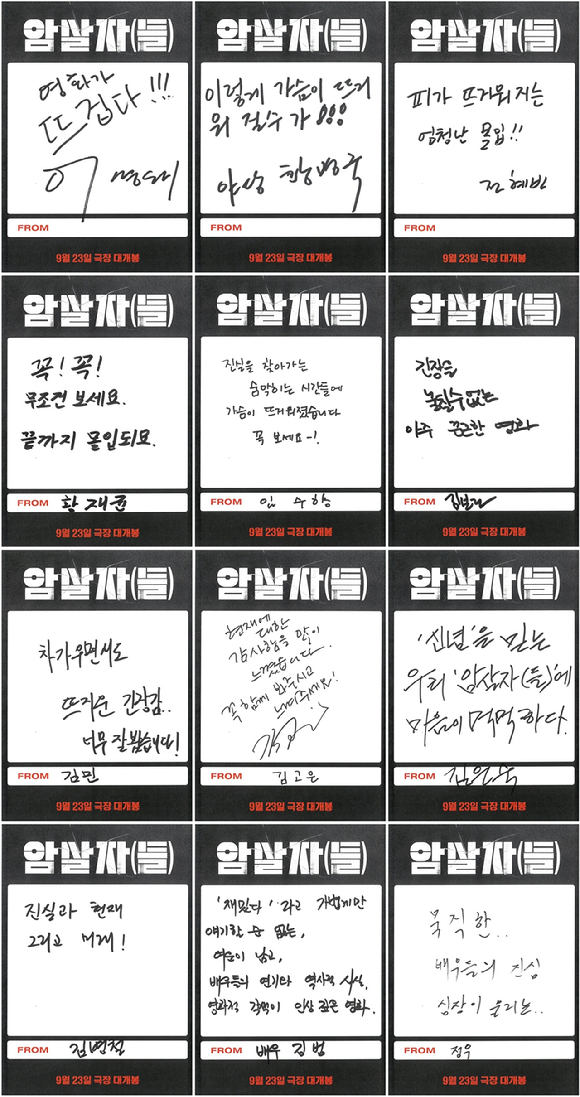 암살자(들)
영화가
뜨겁다!!!
이
FROM
9월 23일 극장 대개봉
암살자(들)
이렇게 가슴이 뜨거
워 질수가!!!
FROM
9월 23일 극장 대개봉
암살자(들)
피가 뜨거워지는
엄청난 몰입!!
전혜빈
FROM
9월 23일 극장 대개봉
암살자(들)
꼭! 꼭!
무조건 보세요.
끝까지 몰입되요.
FROM 황재균
9월 23일 극장 대개봉
암살자(들)
진실을 찾아가는
숨막히는 시간들에
가슴이 뜨거워졌습니다
꼭 보세요~!
FROM 임수향
9월 23일 극장 대개봉
암살자(들)
긴장을
놓칠수없는
아주 쫀쫀한 영화
FROM
9월 23일 극장 대개봉
암살자(들)
차가우면서도
뜨거운 긴장감..
너무 잘 봤습니다!
FROM 김민
9월 23일 극장 대개봉
암살자(들)
현재에
대한
감사함을 많이
느꼈습니다.
꼭 함께 봐주시고
느껴주세요!
FROM 김고은
9월 23일 극장 대개봉
암살자(들)
'신념'을 믿는
우리 '암살자(들)'에
마음이 먹먹하다.
FROM 김은숙
9월 23일 극장 대개봉
암살자(들)
진실과 현재
그리고 미래!
FROM 김명철
9월 23일 극장 대개봉
암살자(들)
'재밌다'라고 가볍게만
얘기할 수 없는,
여운이 남고,
배우들의 연기와 역사적 사실,
영화적 각색이 인상 깊은 영화.
FROM 배우 김범
9월 23일 극장 대개봉
암살자(들)
묵직한..
배우들의 진심
심장이 울리는..
FROM 정우
9월 23일 극장 대개봉